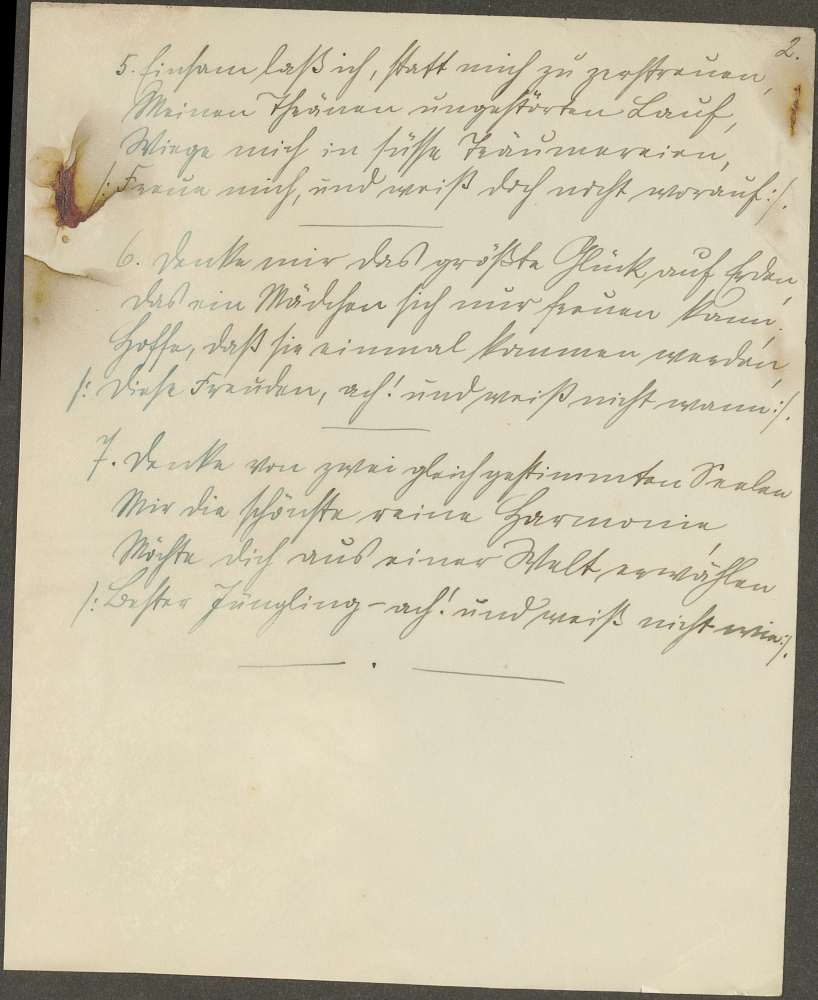 2.
5. Einsam laß ich, statt mich zu zerstreuen,
Meinen Thränen ungestörten Lauf,
Wiege mich in süsse Träumereien,
/: Freue mich, und weiß doch nicht worauf :/.
6. Denke mir das größte Glück auf Erden,
Das ein Mädchen sich nur freuen kann.
Hoffe, daß sie einmal kommen werden,
/: Diese Freuden, ach! und weiß nicht wann :/.
7. Denke von zwei gleichgestimmten Seelen
Mir die schönste reine Harmonie,
Möchte dich aus einer Welt erwählen
/: Bester Jüngling – ach! und weiß nicht wie :/.